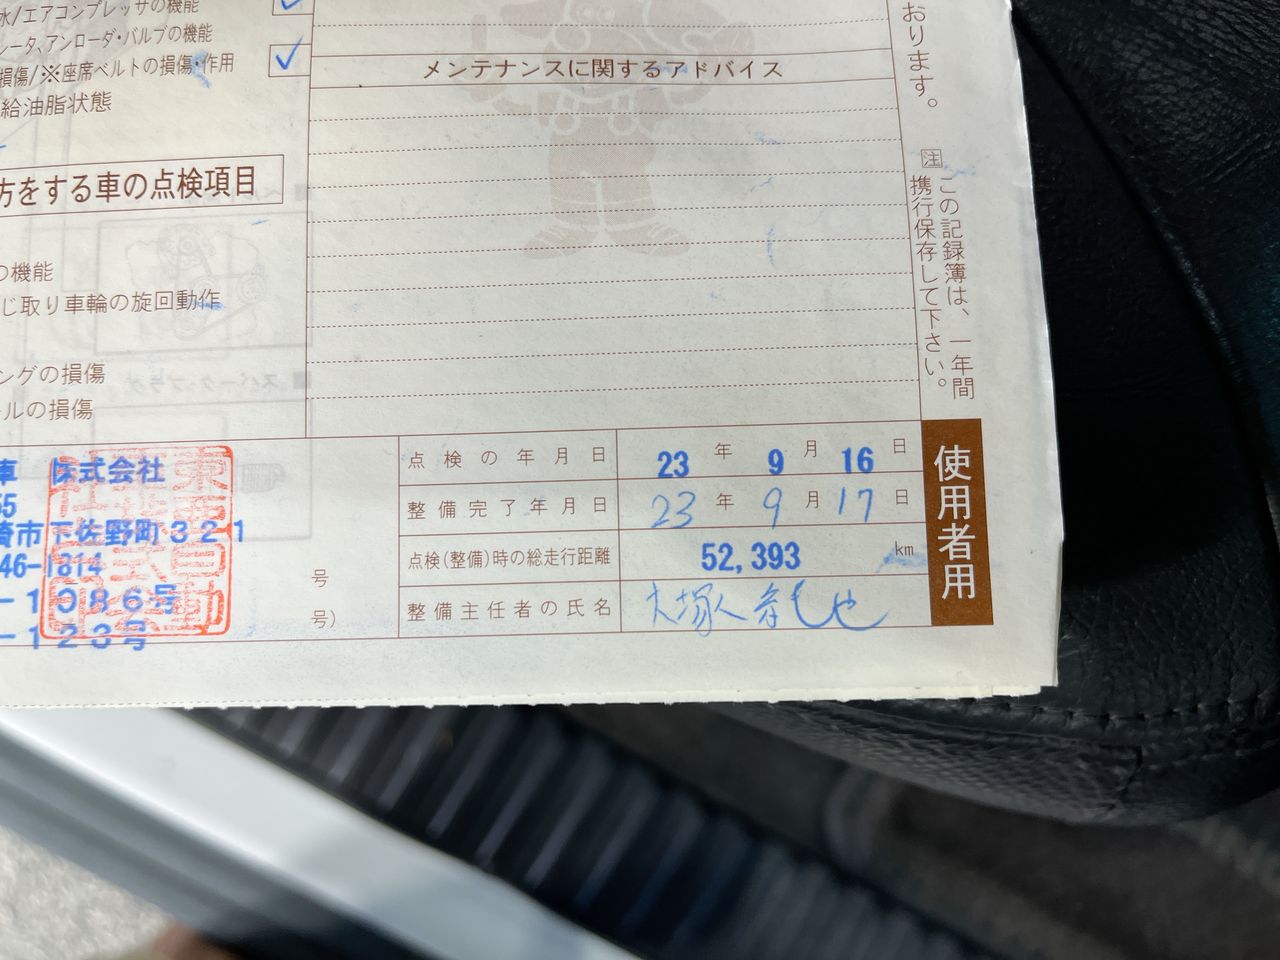 水/エアコンプレッサの機能
レータ、アンローダ・バルブの機能
損傷/※座席ベルトの損傷・作用
給油脂状態
方をする車の点検項目
の機能
じ取り車輪の旋回動作
ングの損傷
ールの損傷
メンテナンスに関するアドバイス
おります。
注 この記録簿は、一年間
携行保存して下さい。
車 株式会社
55
崎市下佐野町321
46-1814
号
-1086号
号)
-123号
点検の年月日 23年9月16日
整備完了年月日 23年9月17日
点検(整備)時の総走行距離 52,393 km
整備主任者の氏名 大塚
使用者用